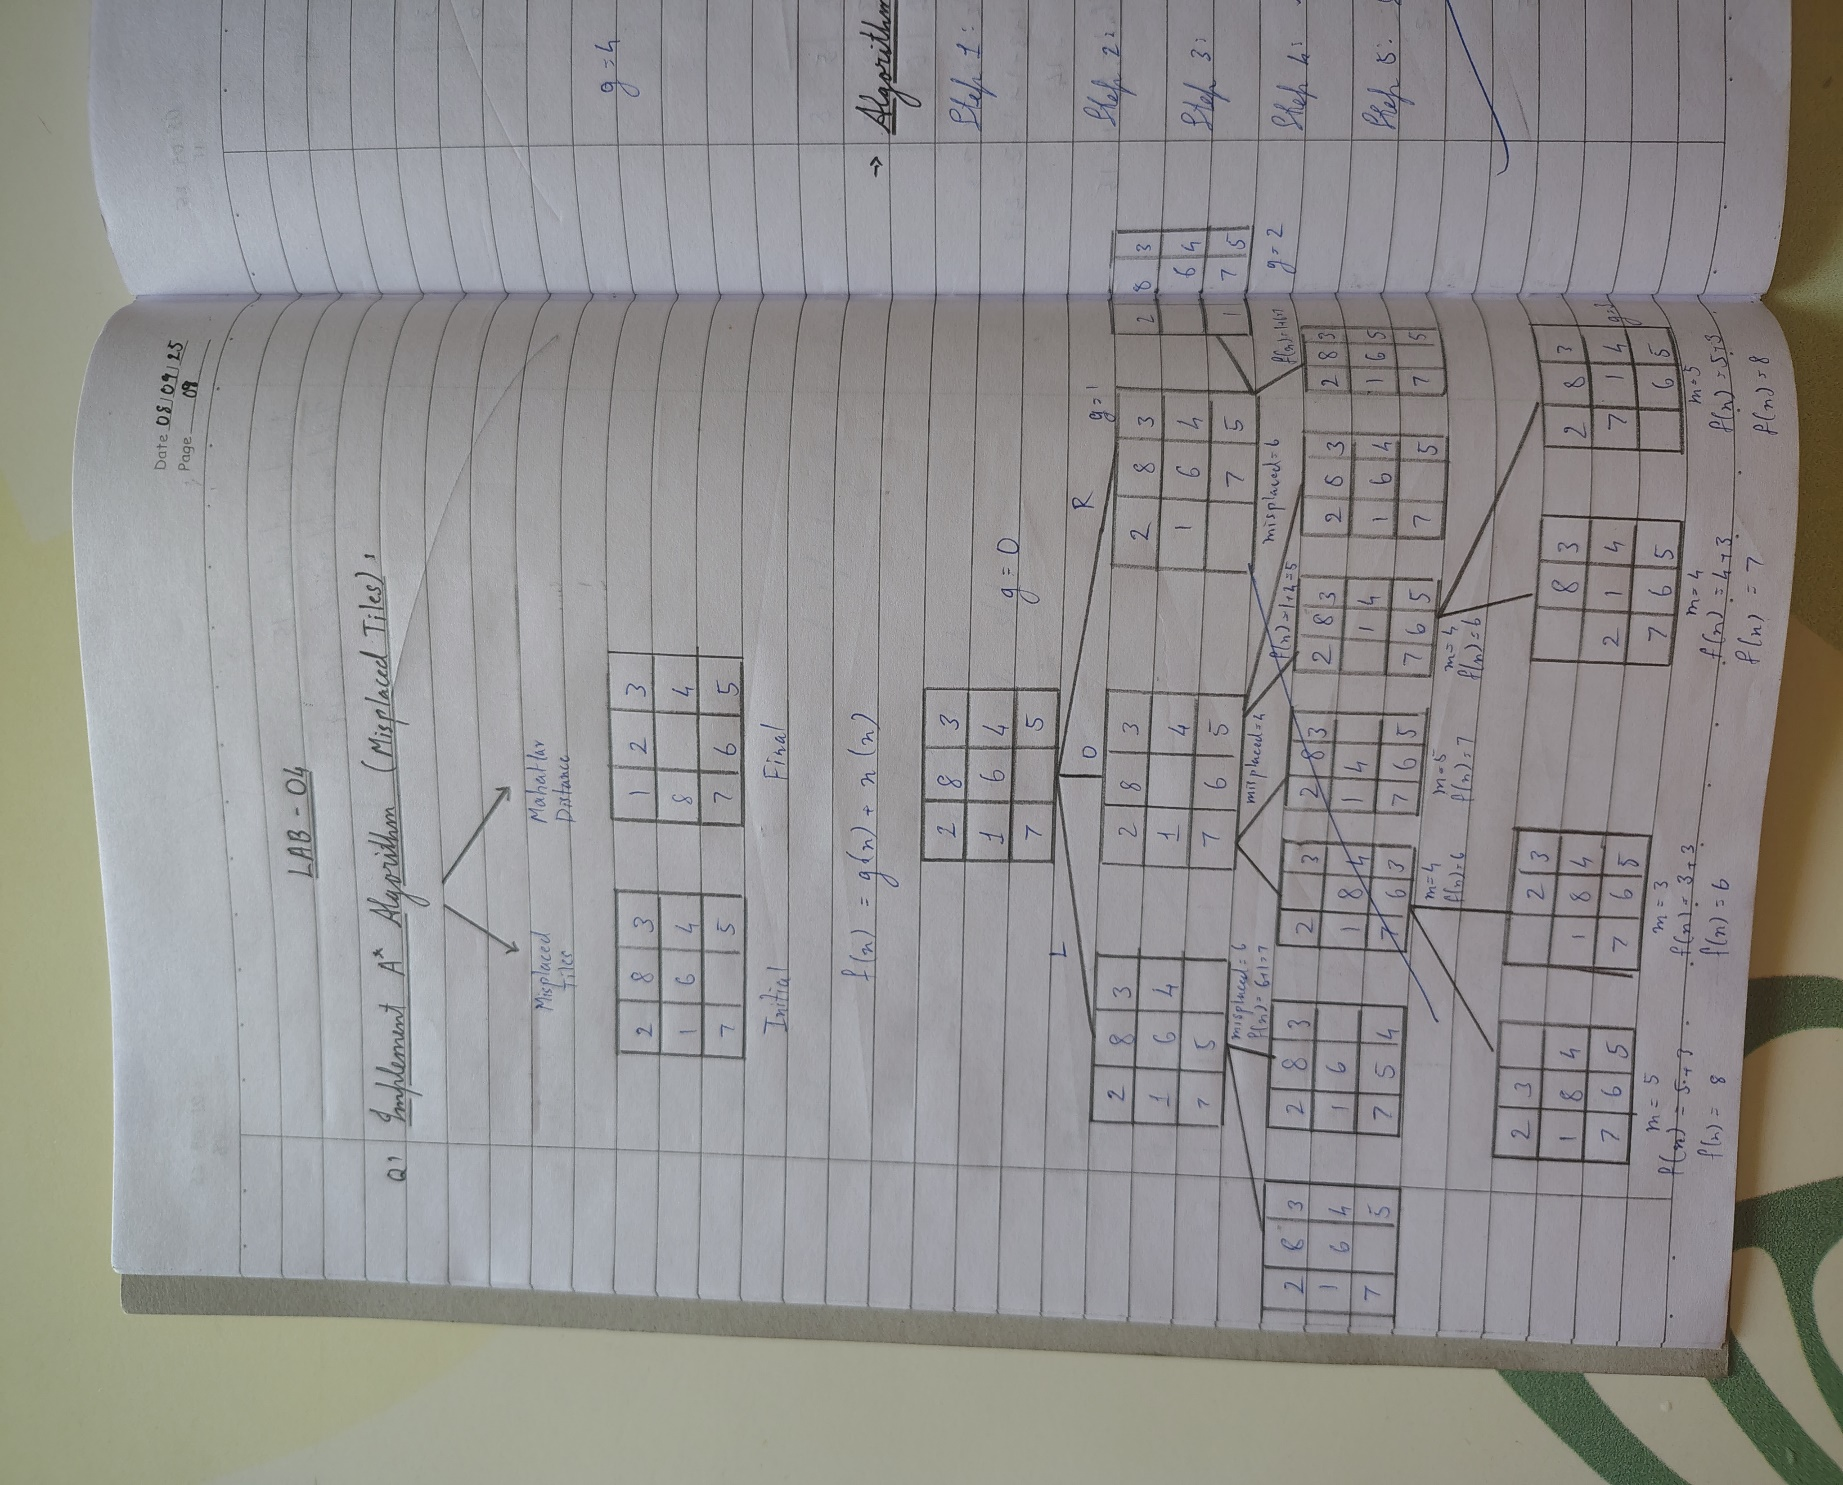 Date 08/09/25
Page 09
LAB - 04
Q) Implement A* Algorithm (Misplaced Tiles):
Misplaced Tiles
Mahattan Distance
2 8 3
1 6 4
7 5
Initial
1 2 3
8 4
7 6 5
Final
f(n) = g(n) + n(n)
2 8 3
1 6 4
7 5
g = 0
L
D
R
g=1
2 8 3
1 6 4
7 5
misplaced = 6
f(n) = 6+1=7
2 8 3
1 4
7 6 5
misplaced=4
f(n)=1+4=5
2 8 3
1 6 4
7 5
misplaced=6
2 8 3
6 4
1 7 5
g=2
2 8 3
1 6 4
7 5
2 8 3
1 6
7 5 4
2 3
1 8 4
7 6 3
m=4
f(n)=6
2 8 3
1 4
7 6 5
m=5
f(n)=7
2 8 3
1 4
7 6 5
m=4
f(n)=6
2 8 3
1 6 4
7 5
2 8 3
1 6 5
7 5
2 3
1 8 4
7 6 5
m = 5
f(n) = 5+3
f(n) = 8
2 3
1 8 4
7 6 5
m = 3
f(n) = 3+3
f(n) = 6
8 3
2 1 4
7 6 5
m = 4
f(n) = 4+3
f(n) = 7
2 8 3
7 1 4
6 5
m=5
f(n) = 5+3
f(n) = 8
g=4
→ Algorithm
Step 1:
Step 2:
Step 3:
Step 4:
Step 5: